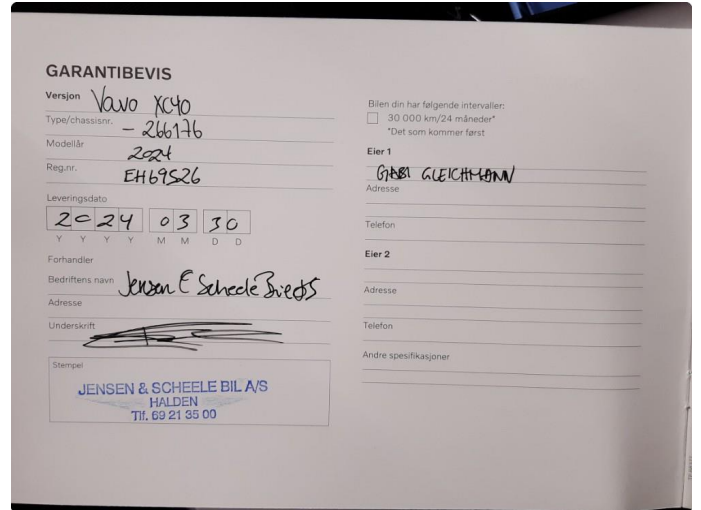 GARANTIBEVIS
Versjon Volvo XC40
Type/chassisnr. - 266176
Modellår 2024
Reg.nr. EH69526
Leveringsdato
2024 03 30
Y Y Y Y M M D D
Forhandler
Bedriftens navn Jensen & Scheele
Adresse
Underskrift
Stempel
JENSEN & SCHEELE BIL A/S
HALDEN
Tlf. 69 21 35 00
Bilen din har følgende intervaller:
30 000 km/24 måneder*
*Det som kommer først
Eier 1
GABI GLEICHMANN
Adresse
Telefon
Eier 2
Adresse
Telefon
Andre spesifikasjoner